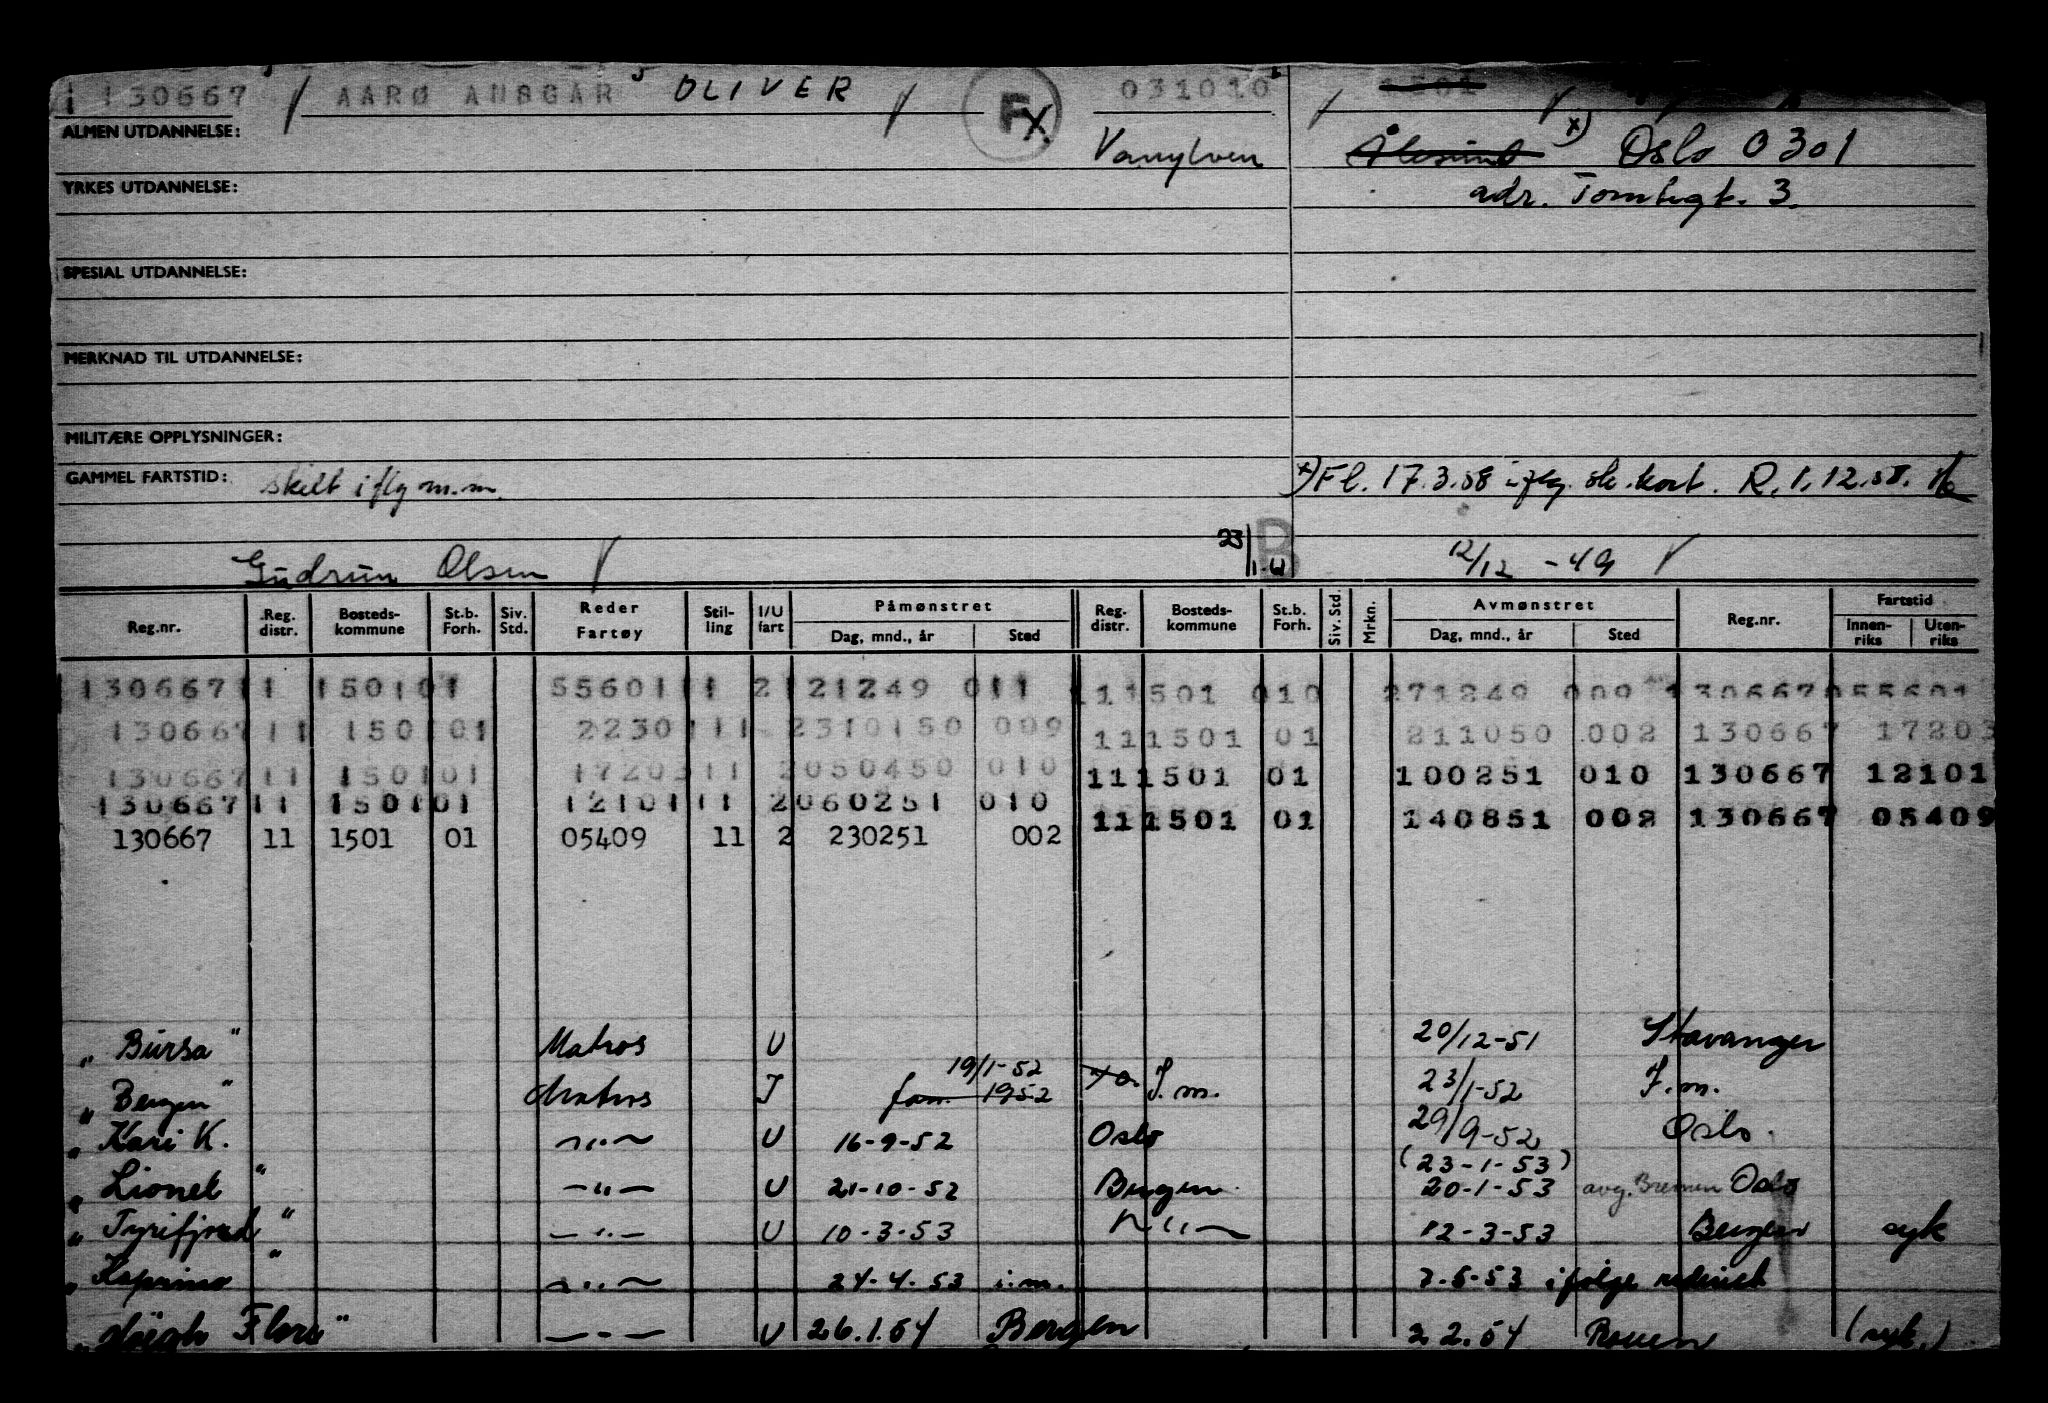 130667 AARØ ANSGAR OLIVER F x 031010 1501
ALMEN UTDANNELSE: Vanylven Ålesund x) Oslo 0301
YRKES UTDANNELSE: adr. Tomtegt. 3.
SPESIAL UTDANNELSE:
MERKNAD TIL UTDANNELSE:
MILITÆRE OPPLYSNINGER:
GAMMEL FARTSTID: skilt iflg m.m. x) Fl. 17.3.58 iflg. sk.kort. R. 1.12.58.
Gudrun Olsen 23/1- B 12/12 -49
Reg.nr. Reg. distr. Bosteds-kommune St.b. Forh. Siv. Std. Reder Fartøy Stil-ling I/U fart Påmønstret Dag, mnd., år Sted Reg. distr. Bosteds-kommune St.b. Forh. Siv. Std. Mrkn. Avmønstret Dag, mnd., år Sted Reg.nr. Fartstid Innen-riks Uten-riks
130667 11 1501 01 55601 11 2 121249 011 111501 010 271249 009 130667 055601
130667 11 1501 01 2230 111 2310150 009 111501 01 211050 002 130667 17203
130667 11 1501 01 17203 11 2 050450 010 111501 01 100251 010 130667 12101
130667 11 1501 01 12101 11 2 060251 010 111501 01 140851 002 130667 05409
130667 11 1501 01 05409 11 2 230251 002
„ Bursa " Matros U 20/12-51 Stavanger
„ Bergen " Matros I 19/1-52 1952 I.m. 23/1-52 I.m.
„ Kari K. —„— U 16-9-52 Oslo 29/9-52 Oslo.
„ Lionel " —„— U 21-10-52 Bergen (23-1-53) 20-1-53 avg. Bremen Oslo
„ Tyrifjord " —„— U 10-3-53 —„— 12-3-53 Bergen syk
„ Kaprino " —„— 24-4-53 i.m. 7-5-53 ifølge rederiet
„ Flora " —„— U 26.1.54 Bergen 2 2.54 Rouen (syk.)